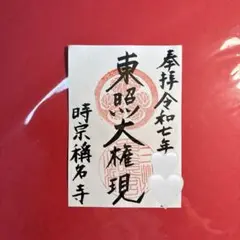 奉拝令和七年
東照大権現
時宗稱名寺